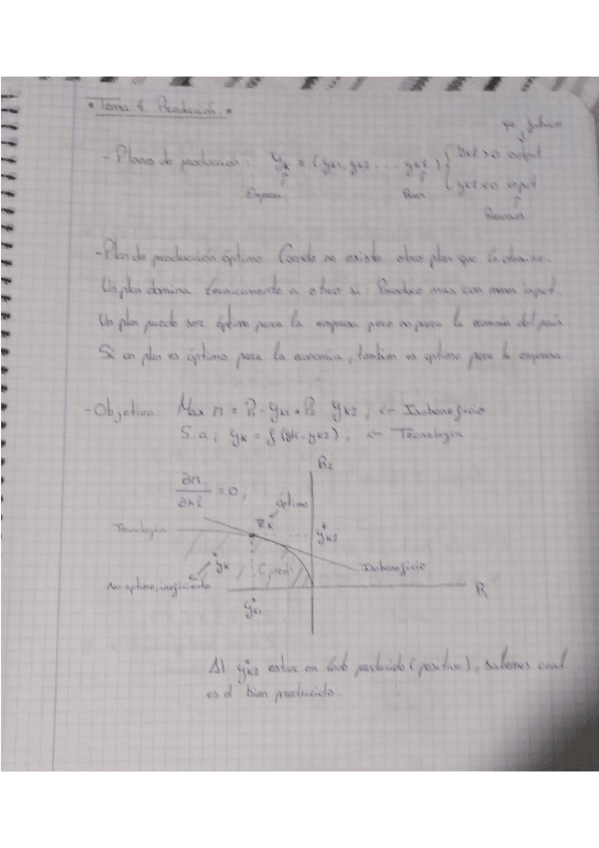 • Tema 4. Producción. •
- Planes de producción: yk = (yk1, yk2 ... ykl) { ykl > 0 output
ykl < 0 input
Empresa
Bien
Recursos
- Plan de producción óptimo. Cuando no existe otro plan que lo domine.
Un plan domina técnicamente a otro si: Produce mas con menos input.
Un plan puede ser óptimo para la empresa pero no para la economía del país
Si un plan es óptimo para la economía, tambien es optimo para la empresa
- Objetivo: Max Π = P1 · yk1 + P2 yk2 ; <- Isobeneficio.
S.a ; yk = f (yk1, yk2) ; <- Tecnología.
B2
∂Π / ∂kl = 0 ;
óptimo
Tecnología
y*k2
yk
Isobeneficio
No optimo, ineficiente
y*k1
Al y*k2 estar en lado producido (positivo), sabemos cual
es el bien producido.